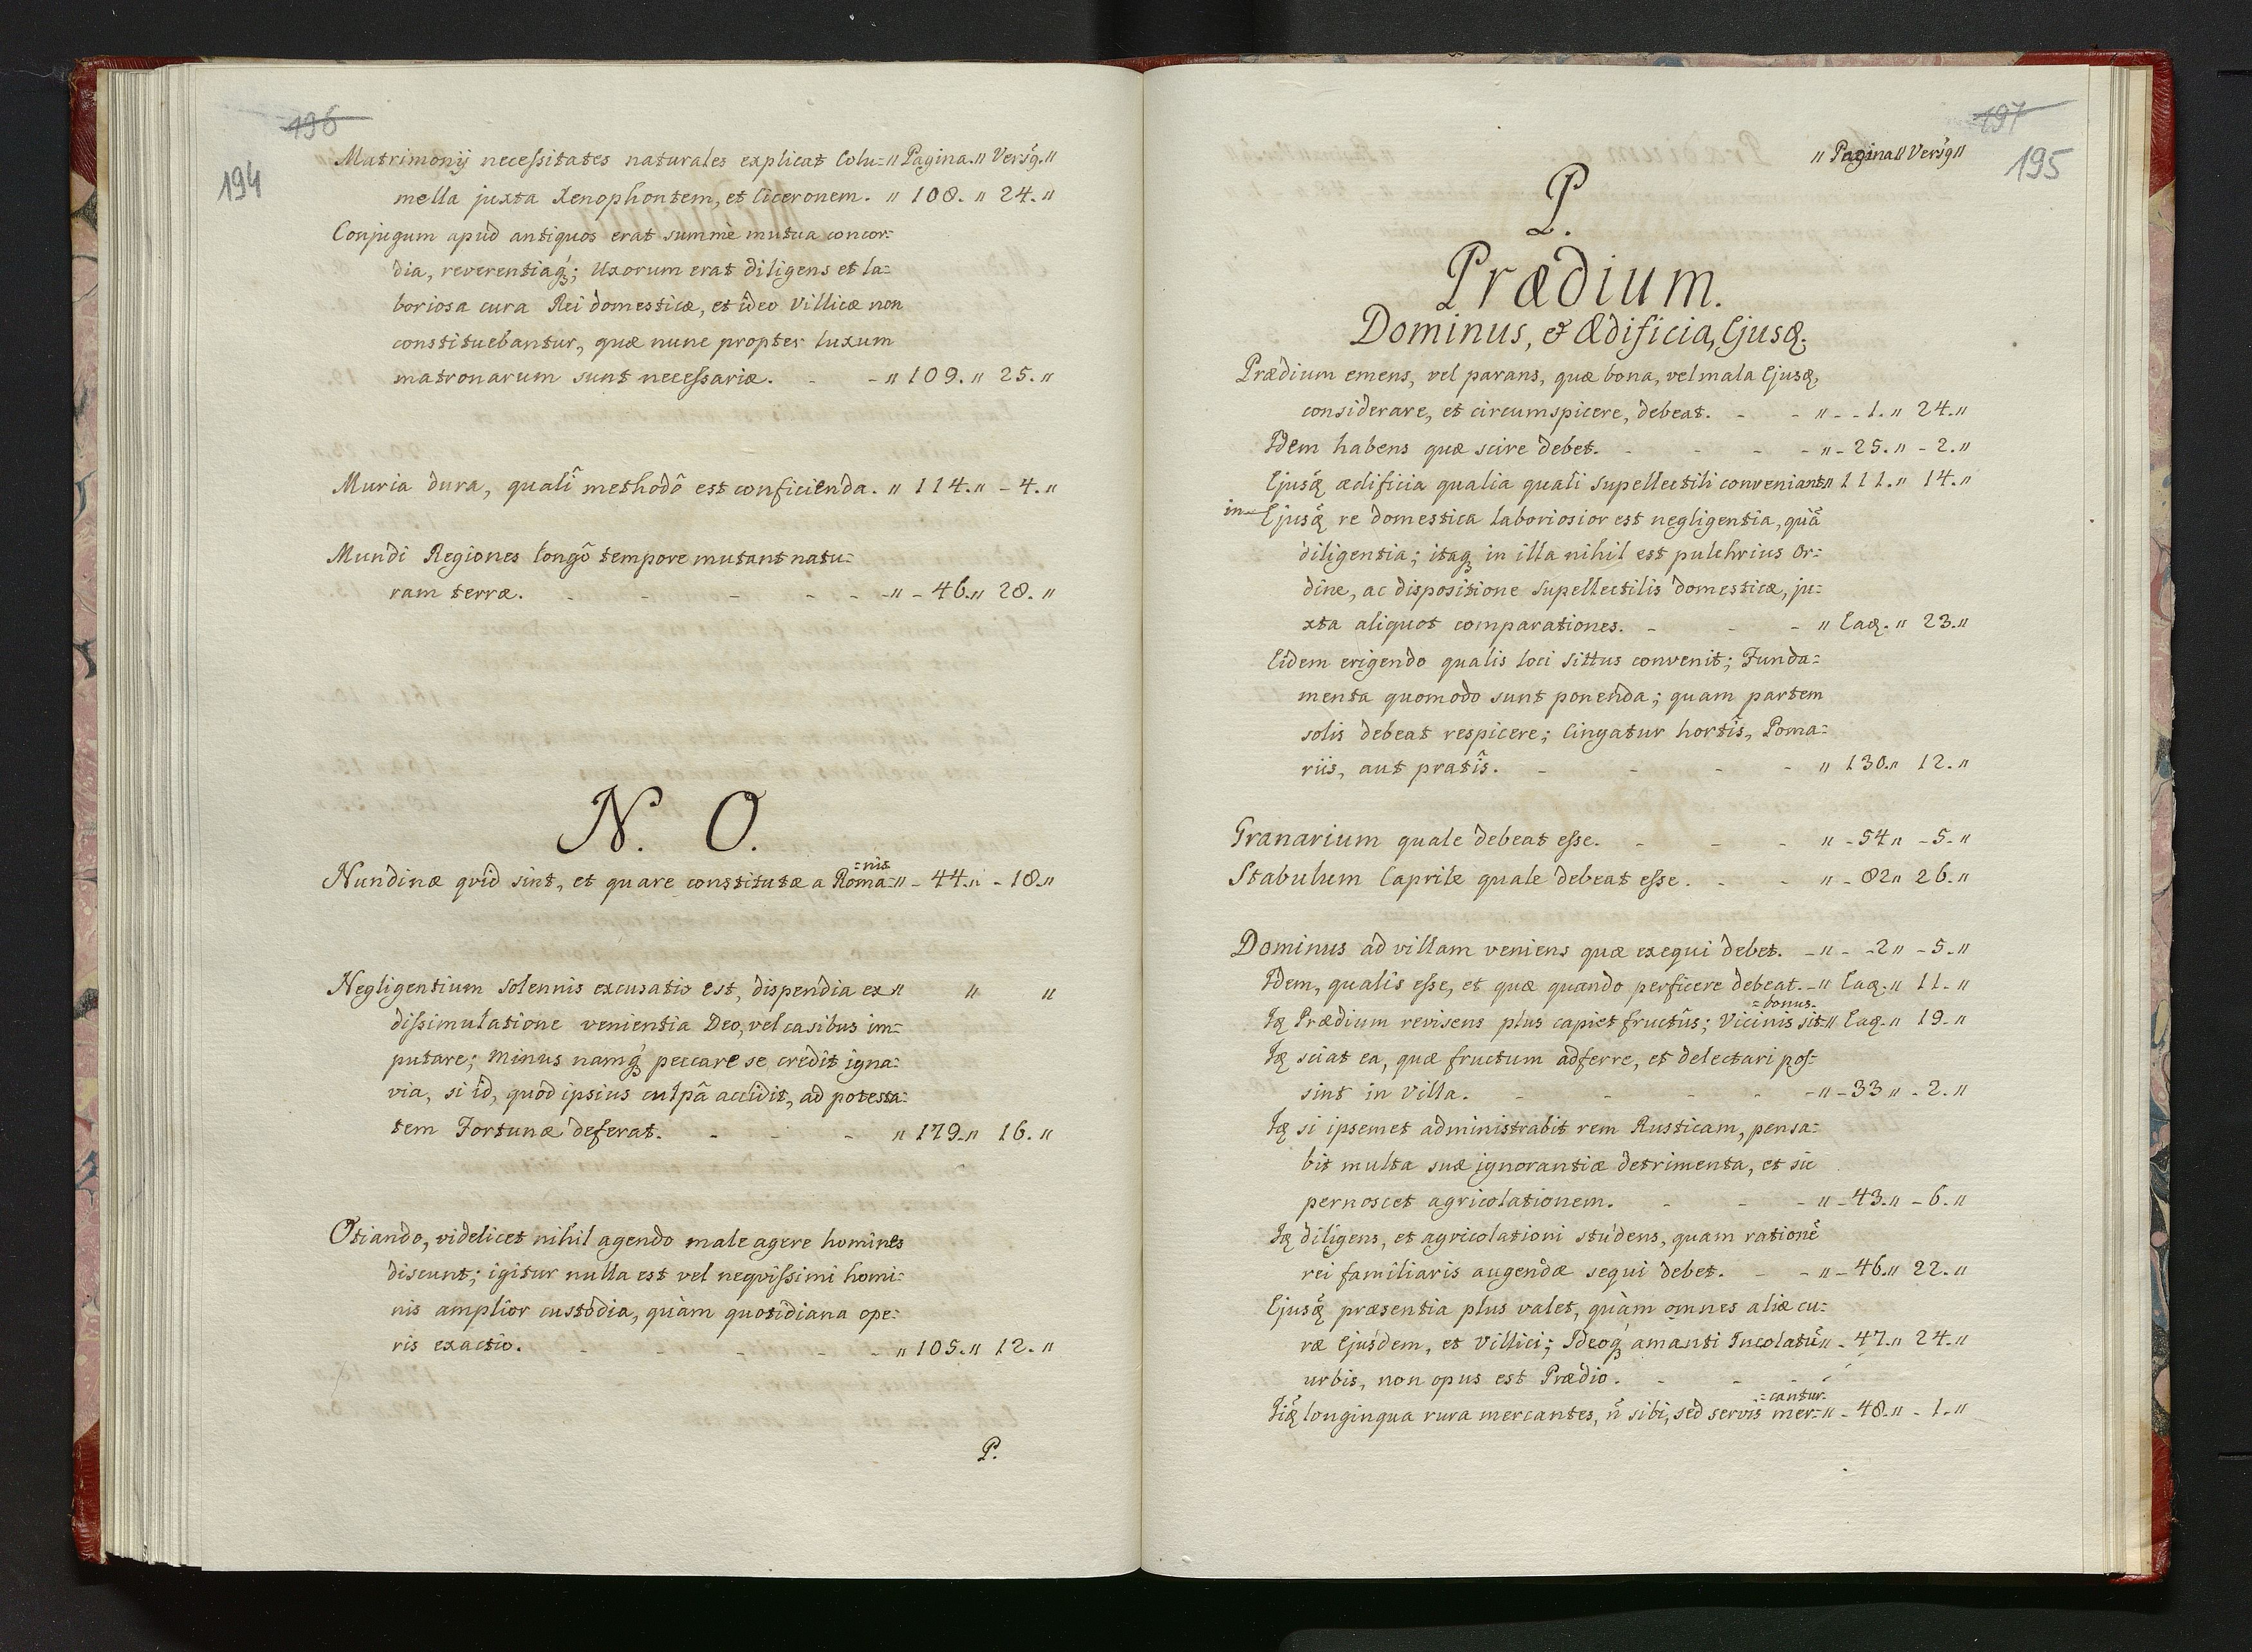 196
194
Matrimonij necessitates naturales explicat Colu= " Pagina. " Versq. "
mella juxta Xenophontem, et Ciceronem. " 108. " 24. "
Conjugum apud antiquos erat summè mutua concor=
dia, reverentiaq́; Uxorum erat diligens et la=
boriosa cura Rei domesticæ, et ideo Villicæ non
constituebantur, quæ nunc propter luxum
matronarum sunt necessariæ. - - " 109. " 25. "
Muria dura, qualî methodô est conficienda. " 114. " - 4. "
Mundi Regiones longô tempore mutant natu=
ram terræ. - - - - - - " - 46. " 28. "
N. O.
=nis
Nundinæ qvid sint, et quare constitutæ a Roma= " - 44. " - 18. "
Negligentium solennis excusatio est, dispendia ex " " "
dissimulatione venientia Deo, vel casibus im=
putare; Minus namq́ peccare se credit igna=
via, si id, quod ipsius culpâ accidit, ad potesta=
tem Fortunæ deferat. - - - " 179. " 16. "
Otiando, videlicet nihil agendo male agere homines
discunt; igitur nulla est vel neqvissimi homi=
nis amplior custodia, quàm quotidiana ope=
ris exactio. - - - - - " 105. " 12. "
P.
197
195
" Pagina " Versq "
P.
Prædium.
Dominus, & Ædificia, Ejusq.
Prædium emens, vel parans, quæ bona, vel mala Ejusq,
considerare, et circumspicere, debeat. - - " - - 1. " 24. "
Idem habens quæ scire debet. - - - - " - 25. " - 2. "
Ejusq̃ ædificia qualia quali supellectili conveniant " 111. " 14. "
in Ejusq̃ re domestica laboriosior est negligentia, quã
diligentia; itaq in illa nihil est pulchrius Or=
dine, ac dispositione Supellectilis domesticæ, ju=
xta aliquot comparationes. - - - " Eaq. " 23. "
Eidem erigendo qualis loci sittus convenit; Funda=
menta quomodo sunt ponenda; quam partem
solis debeat respicere; Cingatur hortîs, Poma=
riis, aut pratîs. - - - - " 130. " 12. "
Granarium quale debeat esse. - - - " - 54 " - 5. "
Stabulum Caprile quale debeat esse. - - " - 82 " 26. "
Dominus ad villam veniens quæ exequi debet. - " - - 2 " - 5. "
Idem, qualis esse, et quæ quando perficere debeat. - " Eaq. " 11. "
=bonus.
Iq Prædium revisens plus capiet fructûs; Vicinis sit= " Eaq. " 19. "
Iq sciat ea, quæ fructum adferre, et delectari pos=
sint in Villa. - - - - - " - 33 " - 2. "
Iq si ipsemet administrabit rem Rusticam, pensa=
bit multa suæ ignorantiæ detrimenta, et sic
pernoscet agricolationem. - - - " - 43. " - 6. "
Iq diligens, et agricolationi studens, quam rationẽ
rei familiaris augendæ sequi debet. - - " - 46. " 22. "
Ejusq̃ præsentia plus valet, quàm omnes aliæ cu=
ræ Ejusdem, et Villici; Ideoq́ amanti Incolatũ " - 47. " 24. "
urbis, non opus est Prædio. - - -
=cantur.
Iiq̃ longinqua rura mercantes, ñ sibi, sed servis mer= " - 48. " - 1. "